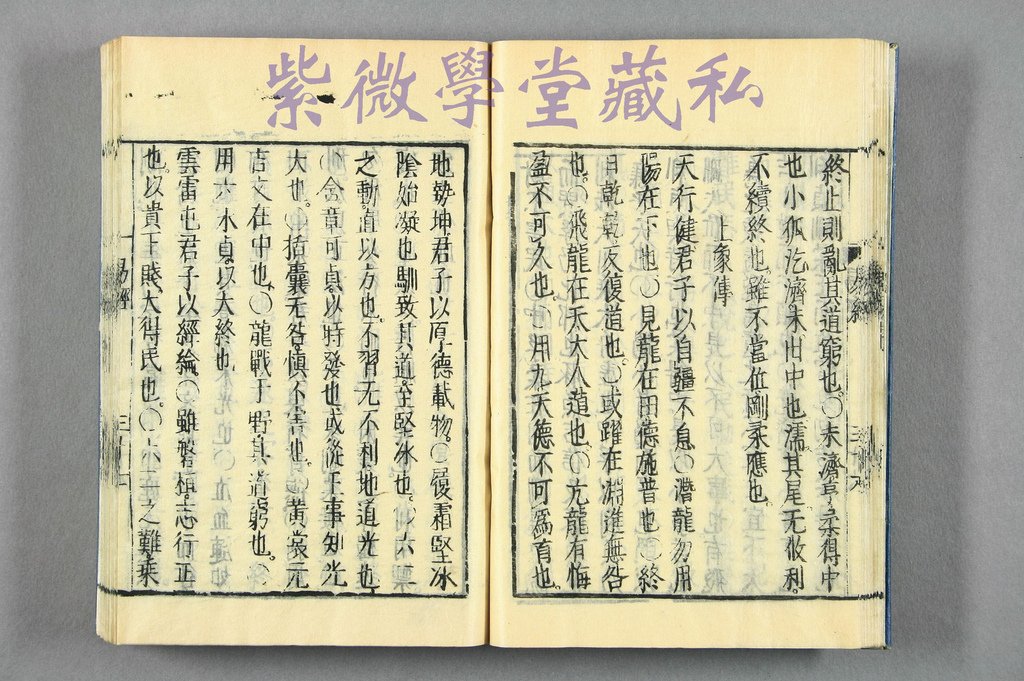 私藏堂學微紫
終止則亂其道窮也○未濟亨柔得中
也小狐汔濟未出中也濡其尾无攸利
不續終也雖不當位剛柔應也
上象傳
天行健君子以自彊不息○潛龍勿用
陽在下也○見龍在田德施普也○終
日乾乾反復道也○或躍在淵進無咎
也○飛龍在天大人造也○亢龍有悔
盈不可久也○用九天德不可為首也
易經
地勢坤君子以厚德載物○履霜堅冰
陰始凝也馴致其道至堅冰也○六二
之動直以方也不習无不利地道光也
○含章可貞以時發也或從王事知光
大也○括囊无咎慎不害也○黃裳元
吉文在中也○龍戰于野其道窮也○
用六永貞以大終也
雲雷屯君子以經綸○雖磐桓志行正
也以貴下賤大得民也○六二之難乘
易經